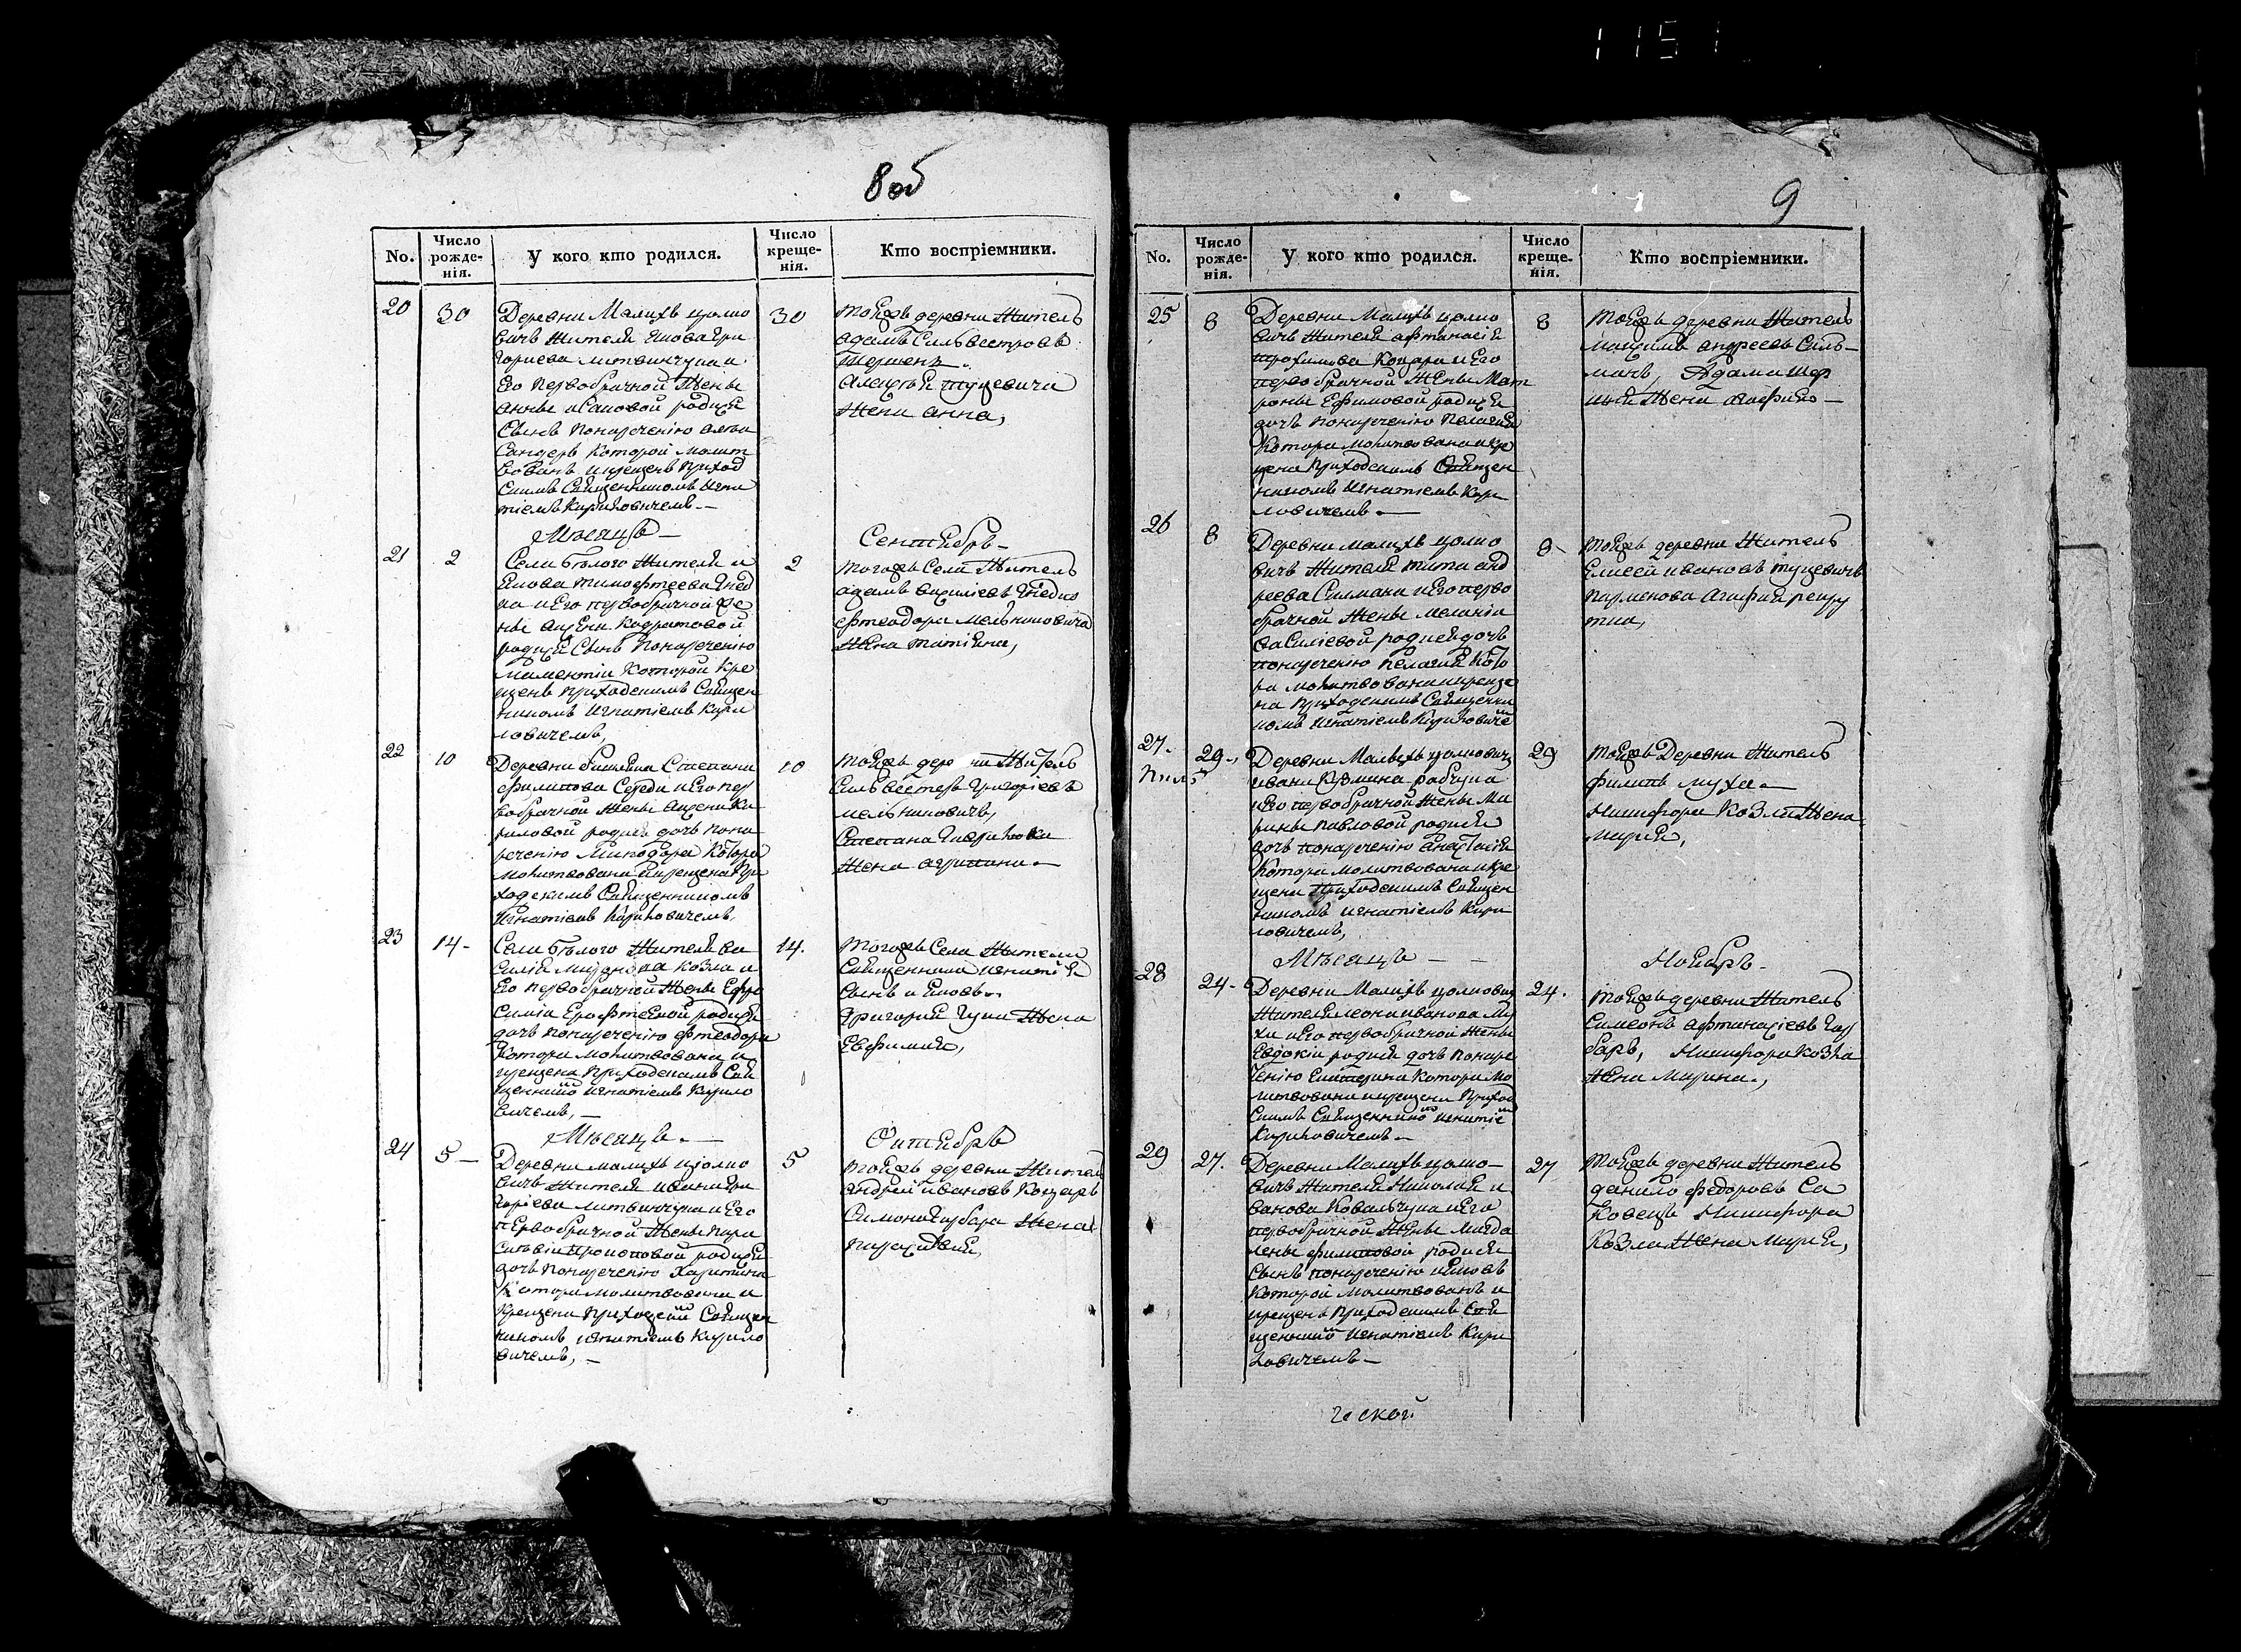 1151
8 об
No.
Число рожде-нія.
У кого кто родился.
Число креще-нія.
Кто воспріемники.
20
30
Деревни Малихъ цолко
вичъ Жителя Якова Гри
гориева Литвинчука и
Его первобрачной Жены
Анны Исаковой родися
Сынъ понаречению Алек
сандеръ Которой молит
вованъ икрещенъ приход
скимъ Священникомъ Игна
тіемъ Кириловичемъ —
30
тойжъ деревни Житель
адамъ Сильвестровъ
Алексѣя туцевича
Жена анна,
Мѣсяцъ —
Сентябрь —
21
2
Села Бѣлого Жителя и
Якова тимофтеева Гнед
ка иЕго первобрачной Же
ны
родися Сынъ Понаречению
Которой кре
щенъ приходскимъ Священ
никомъ Игнатіемъ Кири
ловичемъ,
2
тогожъ Села Житель
адамъ Гнедко
фтеодора Мельниковича
Жена татіяна,
22
10
Деревни Степана
филипова Середи иЕго пер
вобрачной Жены Ки
риловой родися дочъ пона
речению Миподора Котора
молитвована икрещена при
ходскимъ Священникомъ
Игнатіемъ Кириловичемъ,
10
тойжъ деревни Житель
Сильвестеръ Григоріевъ
мельниковичъ,
Степана Гаврилюка
Жена агрипина —
23
14 -
Села Бѣлого Жителя ва
силія Козла и
Его первобрачной Жены Ефро
синіи Ерофтеевой родися
дочъ понаречению фтеодора
Котора молитвована и
крещена Приходскимъ Свя
щенникомъ Игнатіемъ Кирило
вичемъ, —
14.
тогожъ Села Жители
Священника игнатія
Сынъ и Яковъ —
Григорія Гука Жена
Евфимия,
Мѣсяцъ. —
Октябръ
24
5 —
Деревни малихъ цолко
вичъ Жителя ивана Гри
горіева литвинчука иЕго
первобрачной Жены пара
сковіи Прокоповой родися
дочъ понаречению Харитина
Котора молитвована и
крещена приходским Священ
никомъ игнатіемъ Кирило
вичемъ, —
5
тойжъ деревни Житель
андрей ивановъ Коцаръ
Симона Гарбара Жена
параскевия,
9
No.
Число рожде-нія.
У кого кто родился.
Число креще-нія.
Кто воспріемники.
25
8
Деревни Малихъ цолко
вичъ Жителя афтанасія
трохимова Коцара иЕго
первобрачной Жены Мат
роны Ефимовой родися
дочъ понаречению Пелагия
Котора молитвована икре
щена приходскимъ Священ
никомъ Игнатіемъ Кири
ловичемъ —
8
тойжъ деревни Житель
максимъ андреевъ Силь—
манъ, Адама
Жена
26
8
Деревни малихъ цолко
вичъ Жителя тита анд
реева Силмана иЕго перво
брачной Жены меланіи
Василіевой родися дочъ
понаречению Пелагия Кото
ра молитвована икреще
на приходскимъ Священни
комъ Игнатіемъ Кириловиче
8 -
тойжъ деревни Житель
Елисей ивановъ туцевичъ
27.
29 -
Деревни Малыхъ цолкович
ивана Кузмина рабчука
иЕго первобрачной Жены Ма
рины павловой родися
дочъ понаречению Анастасія
Котора молитвована икре
щена Приходскимъ Священ
никомъ игнатіемъ Кири
ловичемъ,
29
тойжъ Деревни Житель
филипъ муха —
Никифора Козла Жена
Мария,
Мѣсяцъ —
Ноябръ -
28
24 -
Деревни Малихъ цолкович
Жителя леона иванова Му
хи иЕго первобрачной Жены
Евдокіи родися дочъ понаре
чению Екатерина Котора мо
литвована икрещена Приход
скимъ Священнико игнатіе
Кириловичемъ —
24.
тойжъ деревни Житель
Симеонъ афтанасіевъ Гар
баръ, Никифора Козла
Жена Марина.,
29
27.
Деревни Малихъ цолко—
вичъ Жителя Николая и
ванова Ковальчука иЕго
первобрачной Жены Магда
лены филиповой родися
Сынъ понаречению ияковъ
Которой Молитвованъ и
крещенъ Приходскимъ Свя
щеннико Игнатіемъ Кири
ловичемъ —
27
тойжъ деревни Житель
данило федоровъ Са
ковецъ Никифора
Козла Жена Мария,